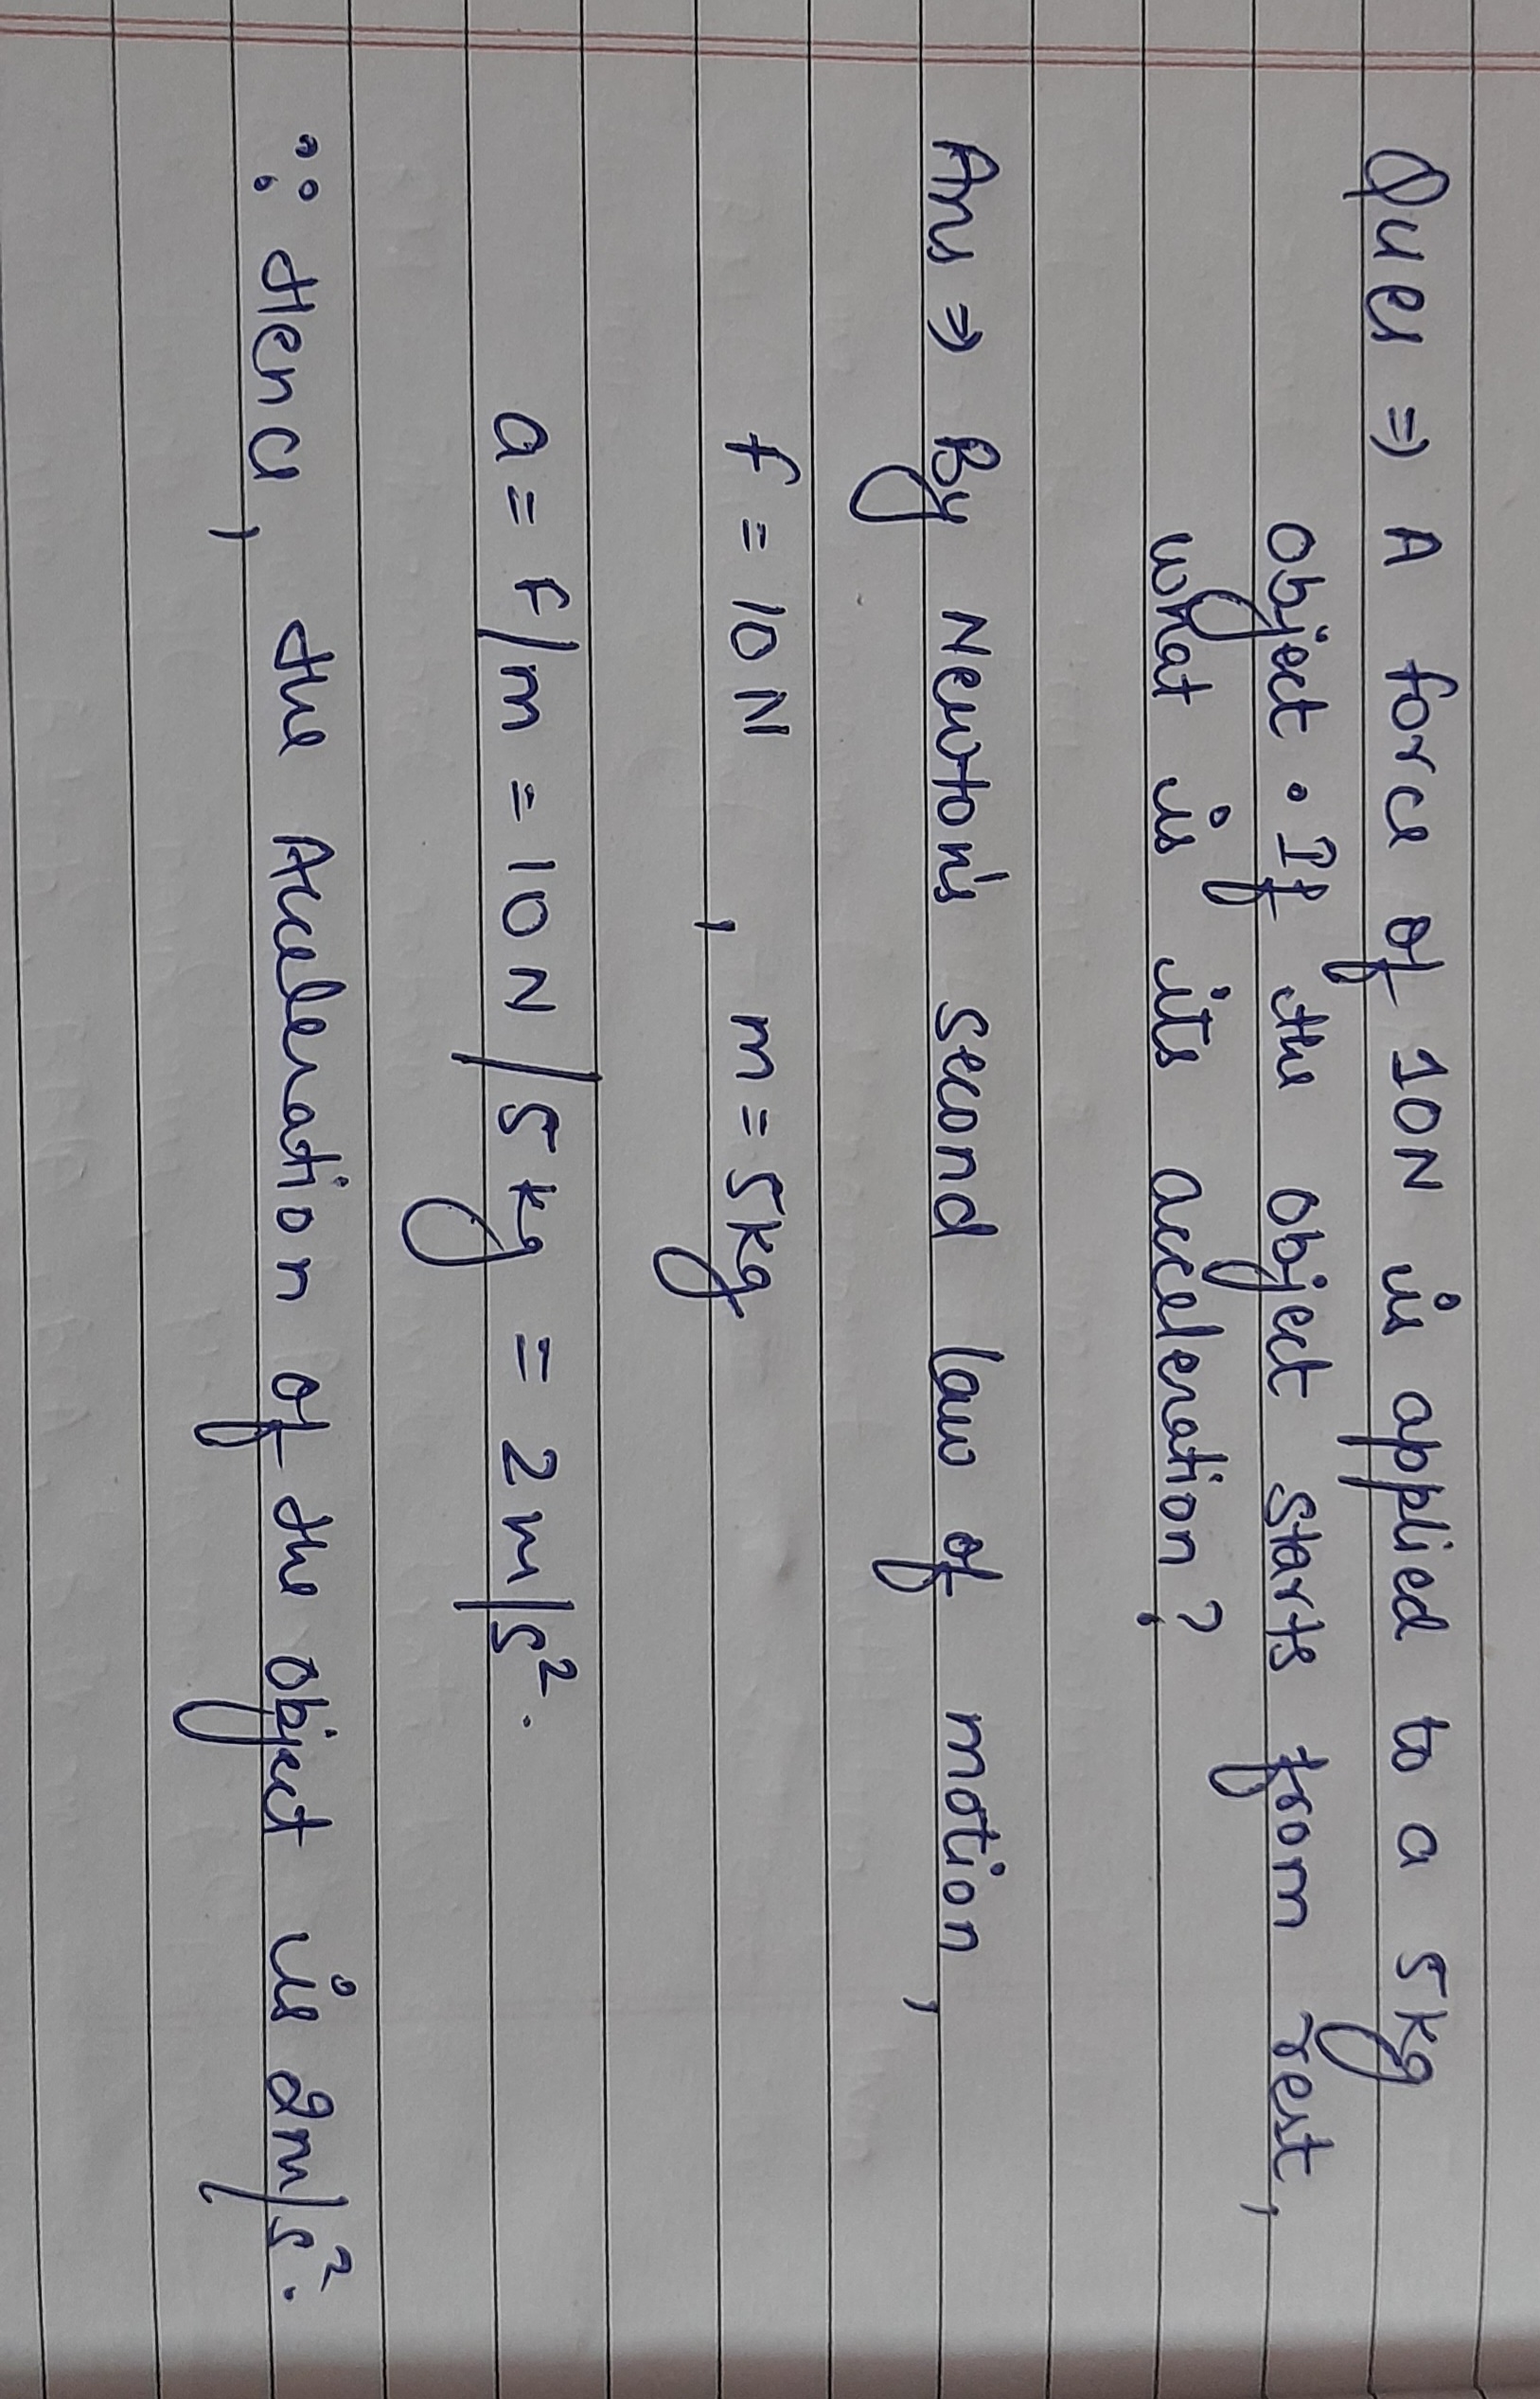 Ques ⇒ A force of 10N is applied to a 5kg
object. If the object starts from rest,
what is its acceleration?
Ans ⇒ By Newton's second law of motion,
f = 10N , m = 5kg
a = f/m = 10N/5kg = 2m/s².
∴ Hence, the Acceleration of the object is 2m/s².